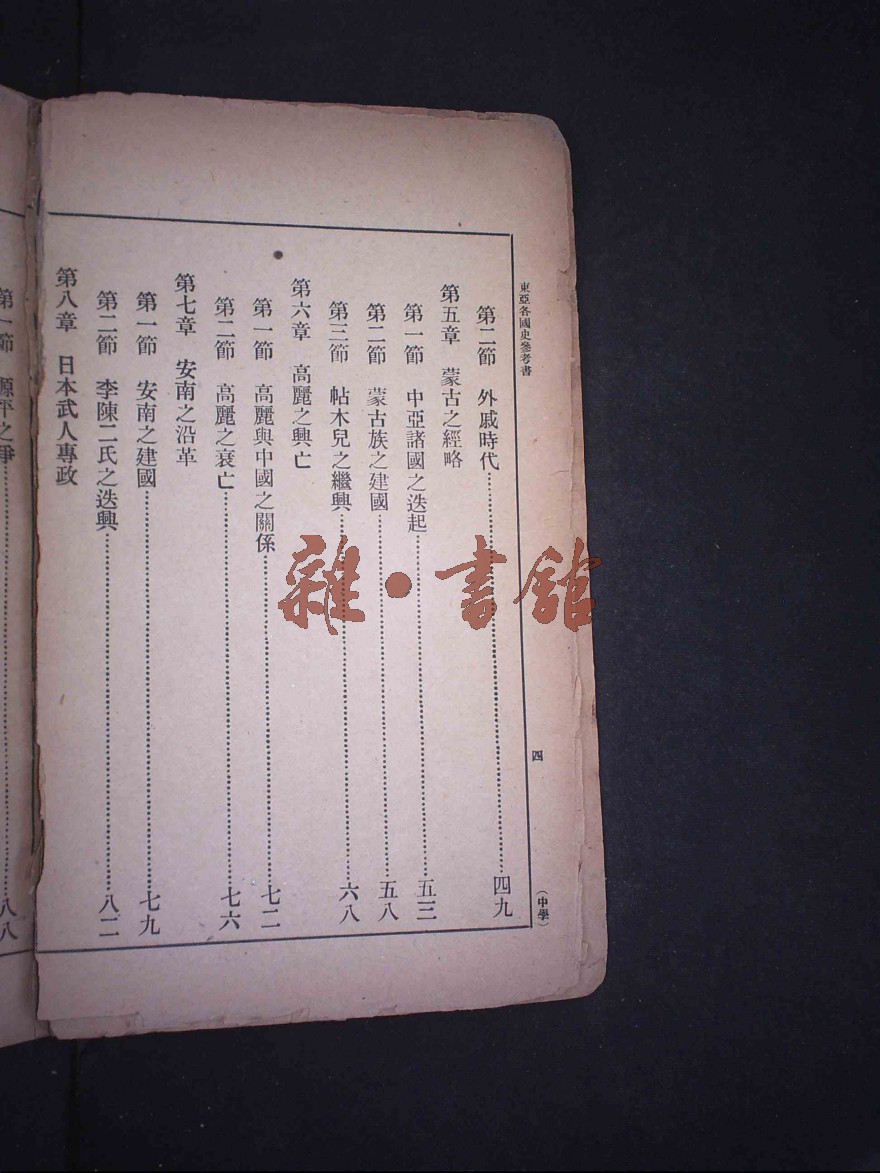 東亞各國史參考書
四
(中學)
第二節 外戚時代 四九
第五章 蒙古之經略
第一節 中亞諸國之迭起 五三
第二節 蒙古族之建國 五八
第三節 帖木兒之繼興 六八
第六章 高麗之興亡
第一節 高麗與中國之關係 七二
第二節 高麗之衰亡 七六
第七章 安南之沿革
第一節 安南之建國 七九
第二節 李陳二氏之迭興 八二
第八章 日本武人專政
第一節 源平之爭 八八
雜·書館